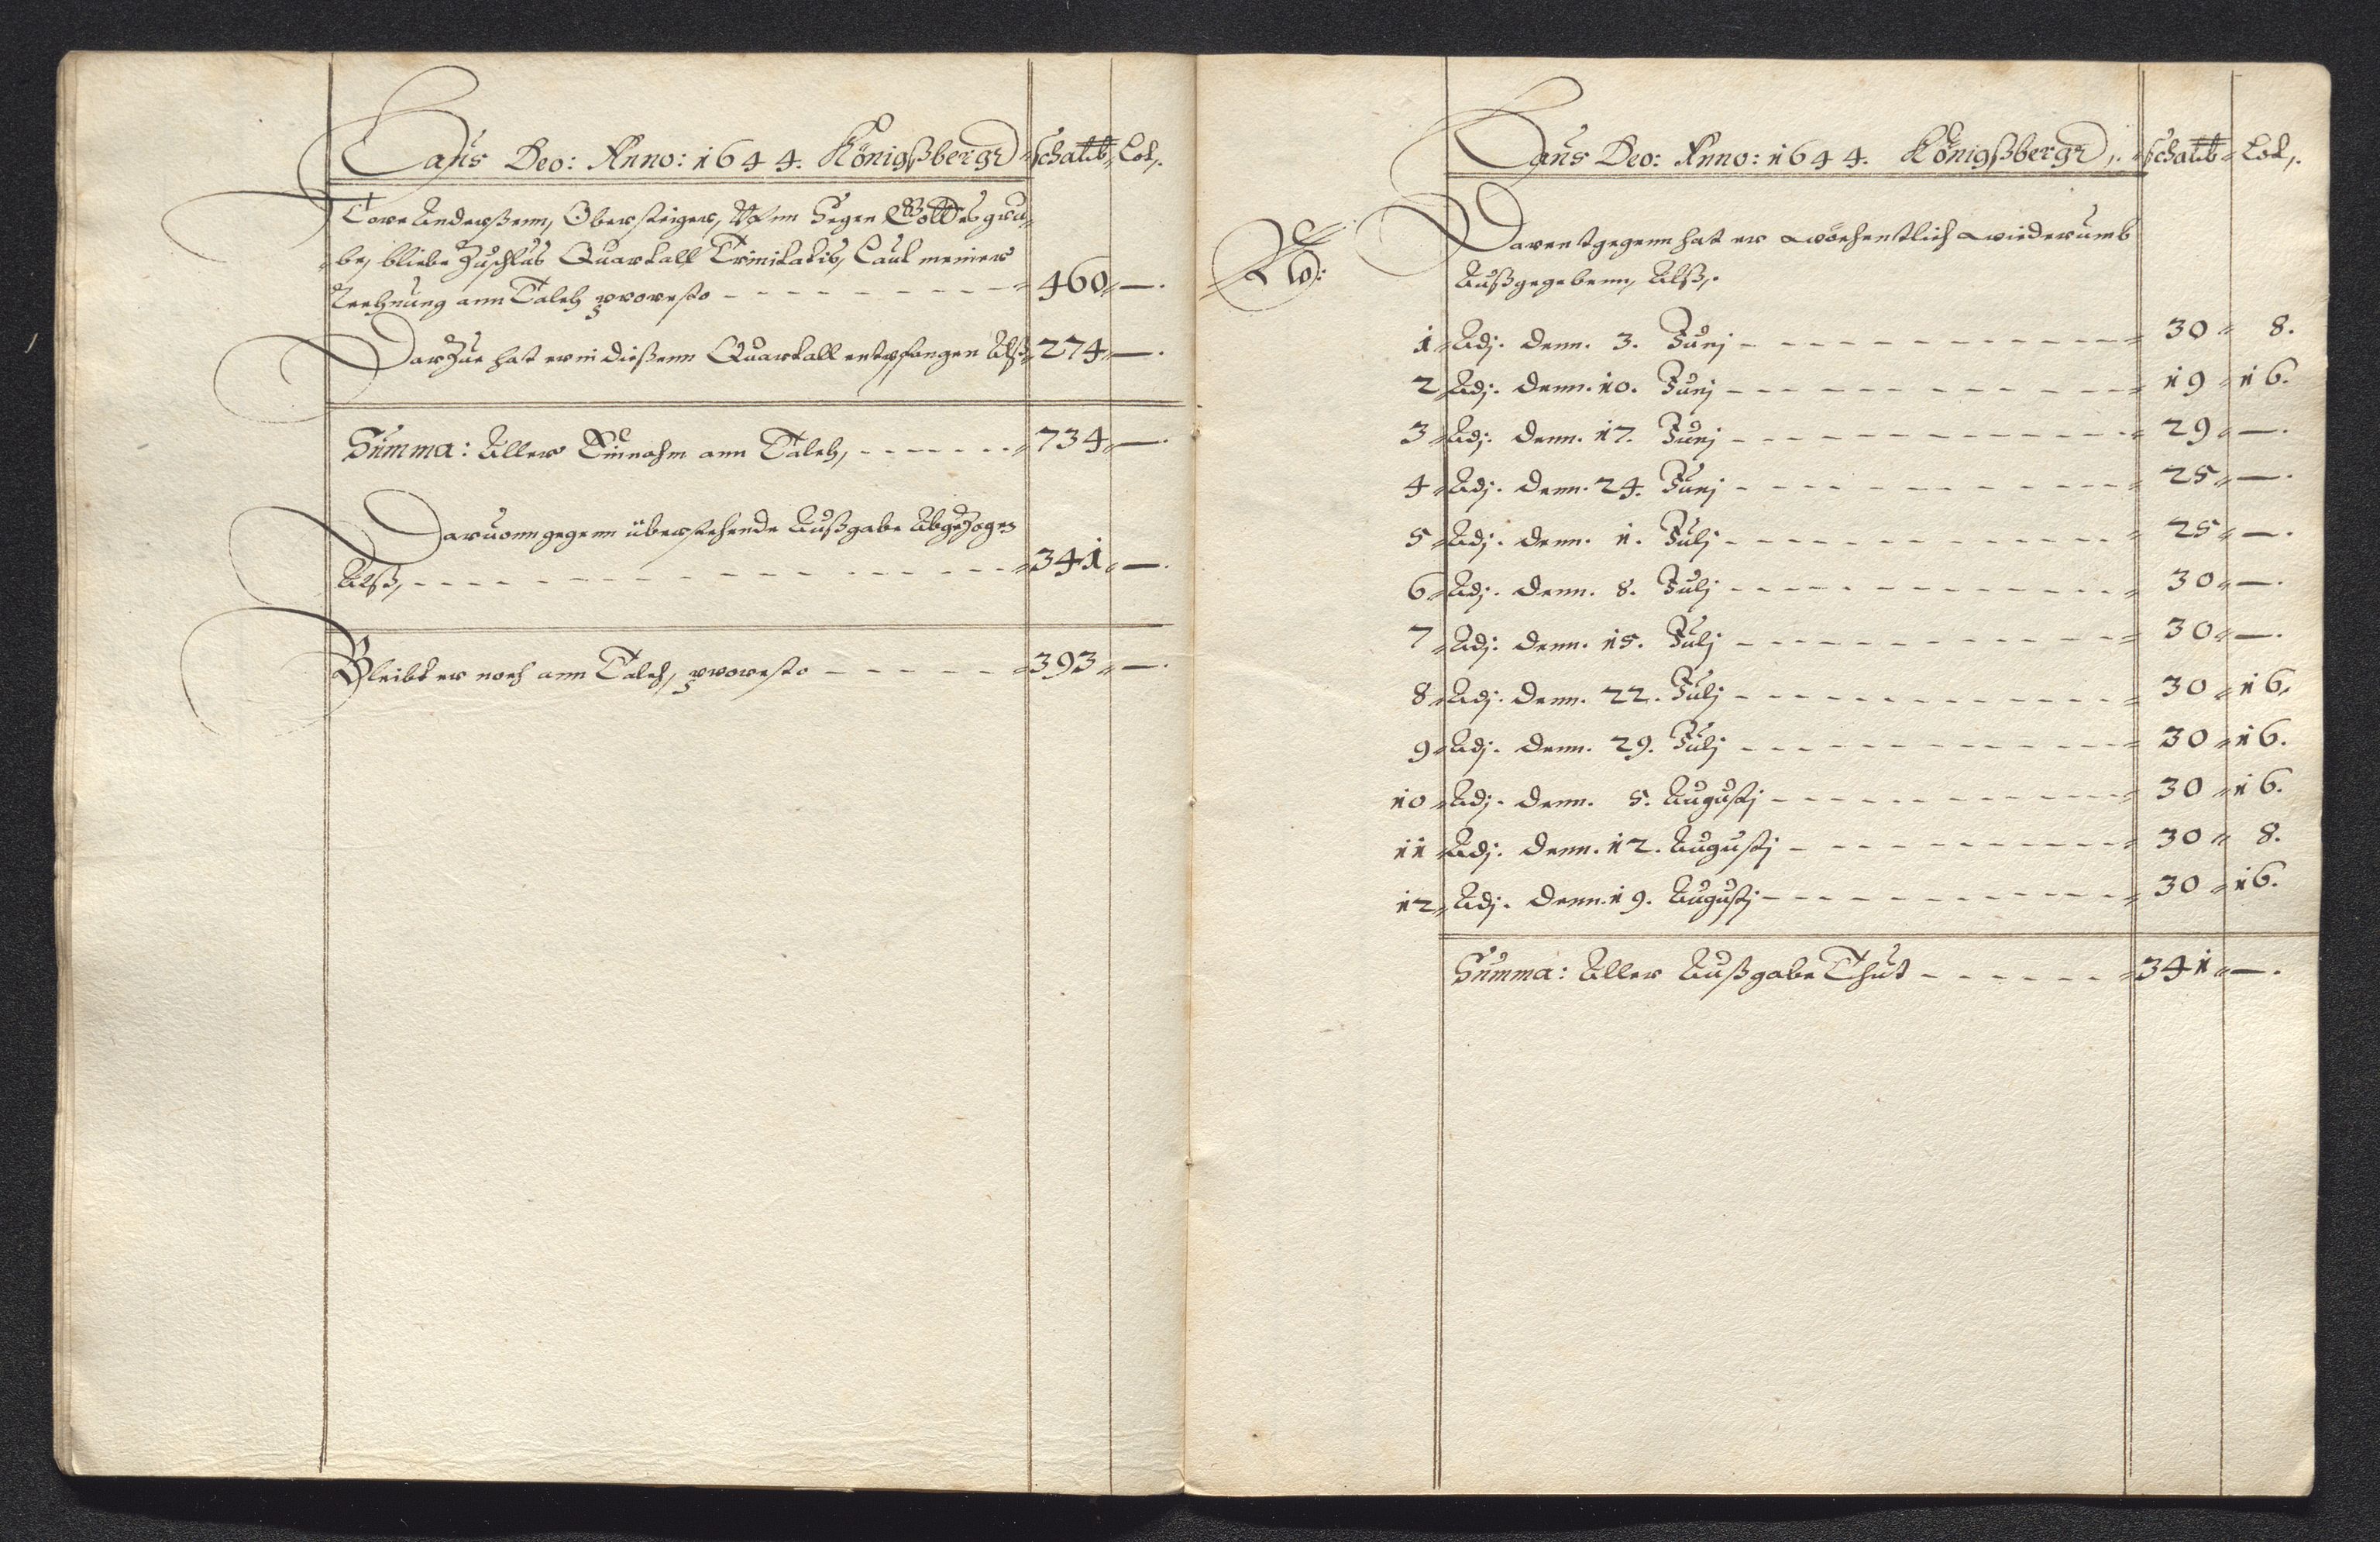 Laus Deo: Anno: 1644. Königsberg Schalib. Lot.
Tore Anderßenn, Obersteiger, Vfm Segen Gottes gru-
be, bliebe Zuschlus Quartall Trinitatis, Laut meiner
Rechnung ann Taleh, pro resto - - - 460 — .
Darzue hat er in dießenn Quartall entpfangen Alß 274 — .
Summa: Aller Einnahm ann Taleh, - - - 734 — .
Daruonn gegenn überstehende Außgabe Abgezogen
Alß, - - - 341 — .
Bleibt er noch ann Taleh, pro resto - - - 393 — .
Laus Deo: Anno: 1644. Königsberg. Schalib. Lot.
Darentgegenn hat er wöchentlich wiederumb
Außgegebenn, Alß,
1 Adj. denn. 3. Junj - - - 30 8.
2 Adj. denn. 10. Junj - - - 19 16.
3 Adj. denn. 17. Junj - - - 29 — .
4 Adj. denn. 24. Junj - - - 25 — .
5 Adj. denn. 1. Julj - - - 25 — .
6 Adj. denn. 8. Julj - - - 30 — .
7 Adj. denn. 15. Julj - - - 30 — .
8 Adj. denn. 22. Julj - - - 30 16.
9 Adj. denn. 29. Julj - - - 30 16.
10 Adj. denn. 5. Augustj - - - 30 16.
11 Adj. denn. 12. Augustj - - - 30 8.
12 Adj. denn. 19. Augustj - - - 30 16.
Summa: Aller Außgabe Thut - - - 341 — .